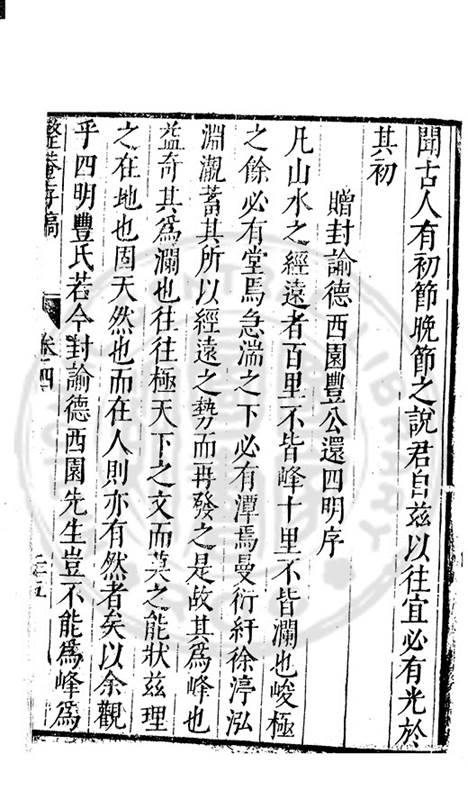 聞古人有初節晚節之說君自茲以往宜必有光於
其初
贈封諭德西園豐公還四明序
凡山水之經遠者百里不皆峰十里不皆瀾也峻極
之餘必有堂焉急湍之下必有潭焉曼衍紆徐渟泓
淵瀜蓄其所以經遠之勢而再發之是故其為峰也
益奇其為瀾也往往極天下之文而莫之能狀茲理
之在地也固天然也而在人則亦有然者矣以余觀
乎四明豐氏若今封諭德西園先生豈不能為峰為
整菴存稿
卷四